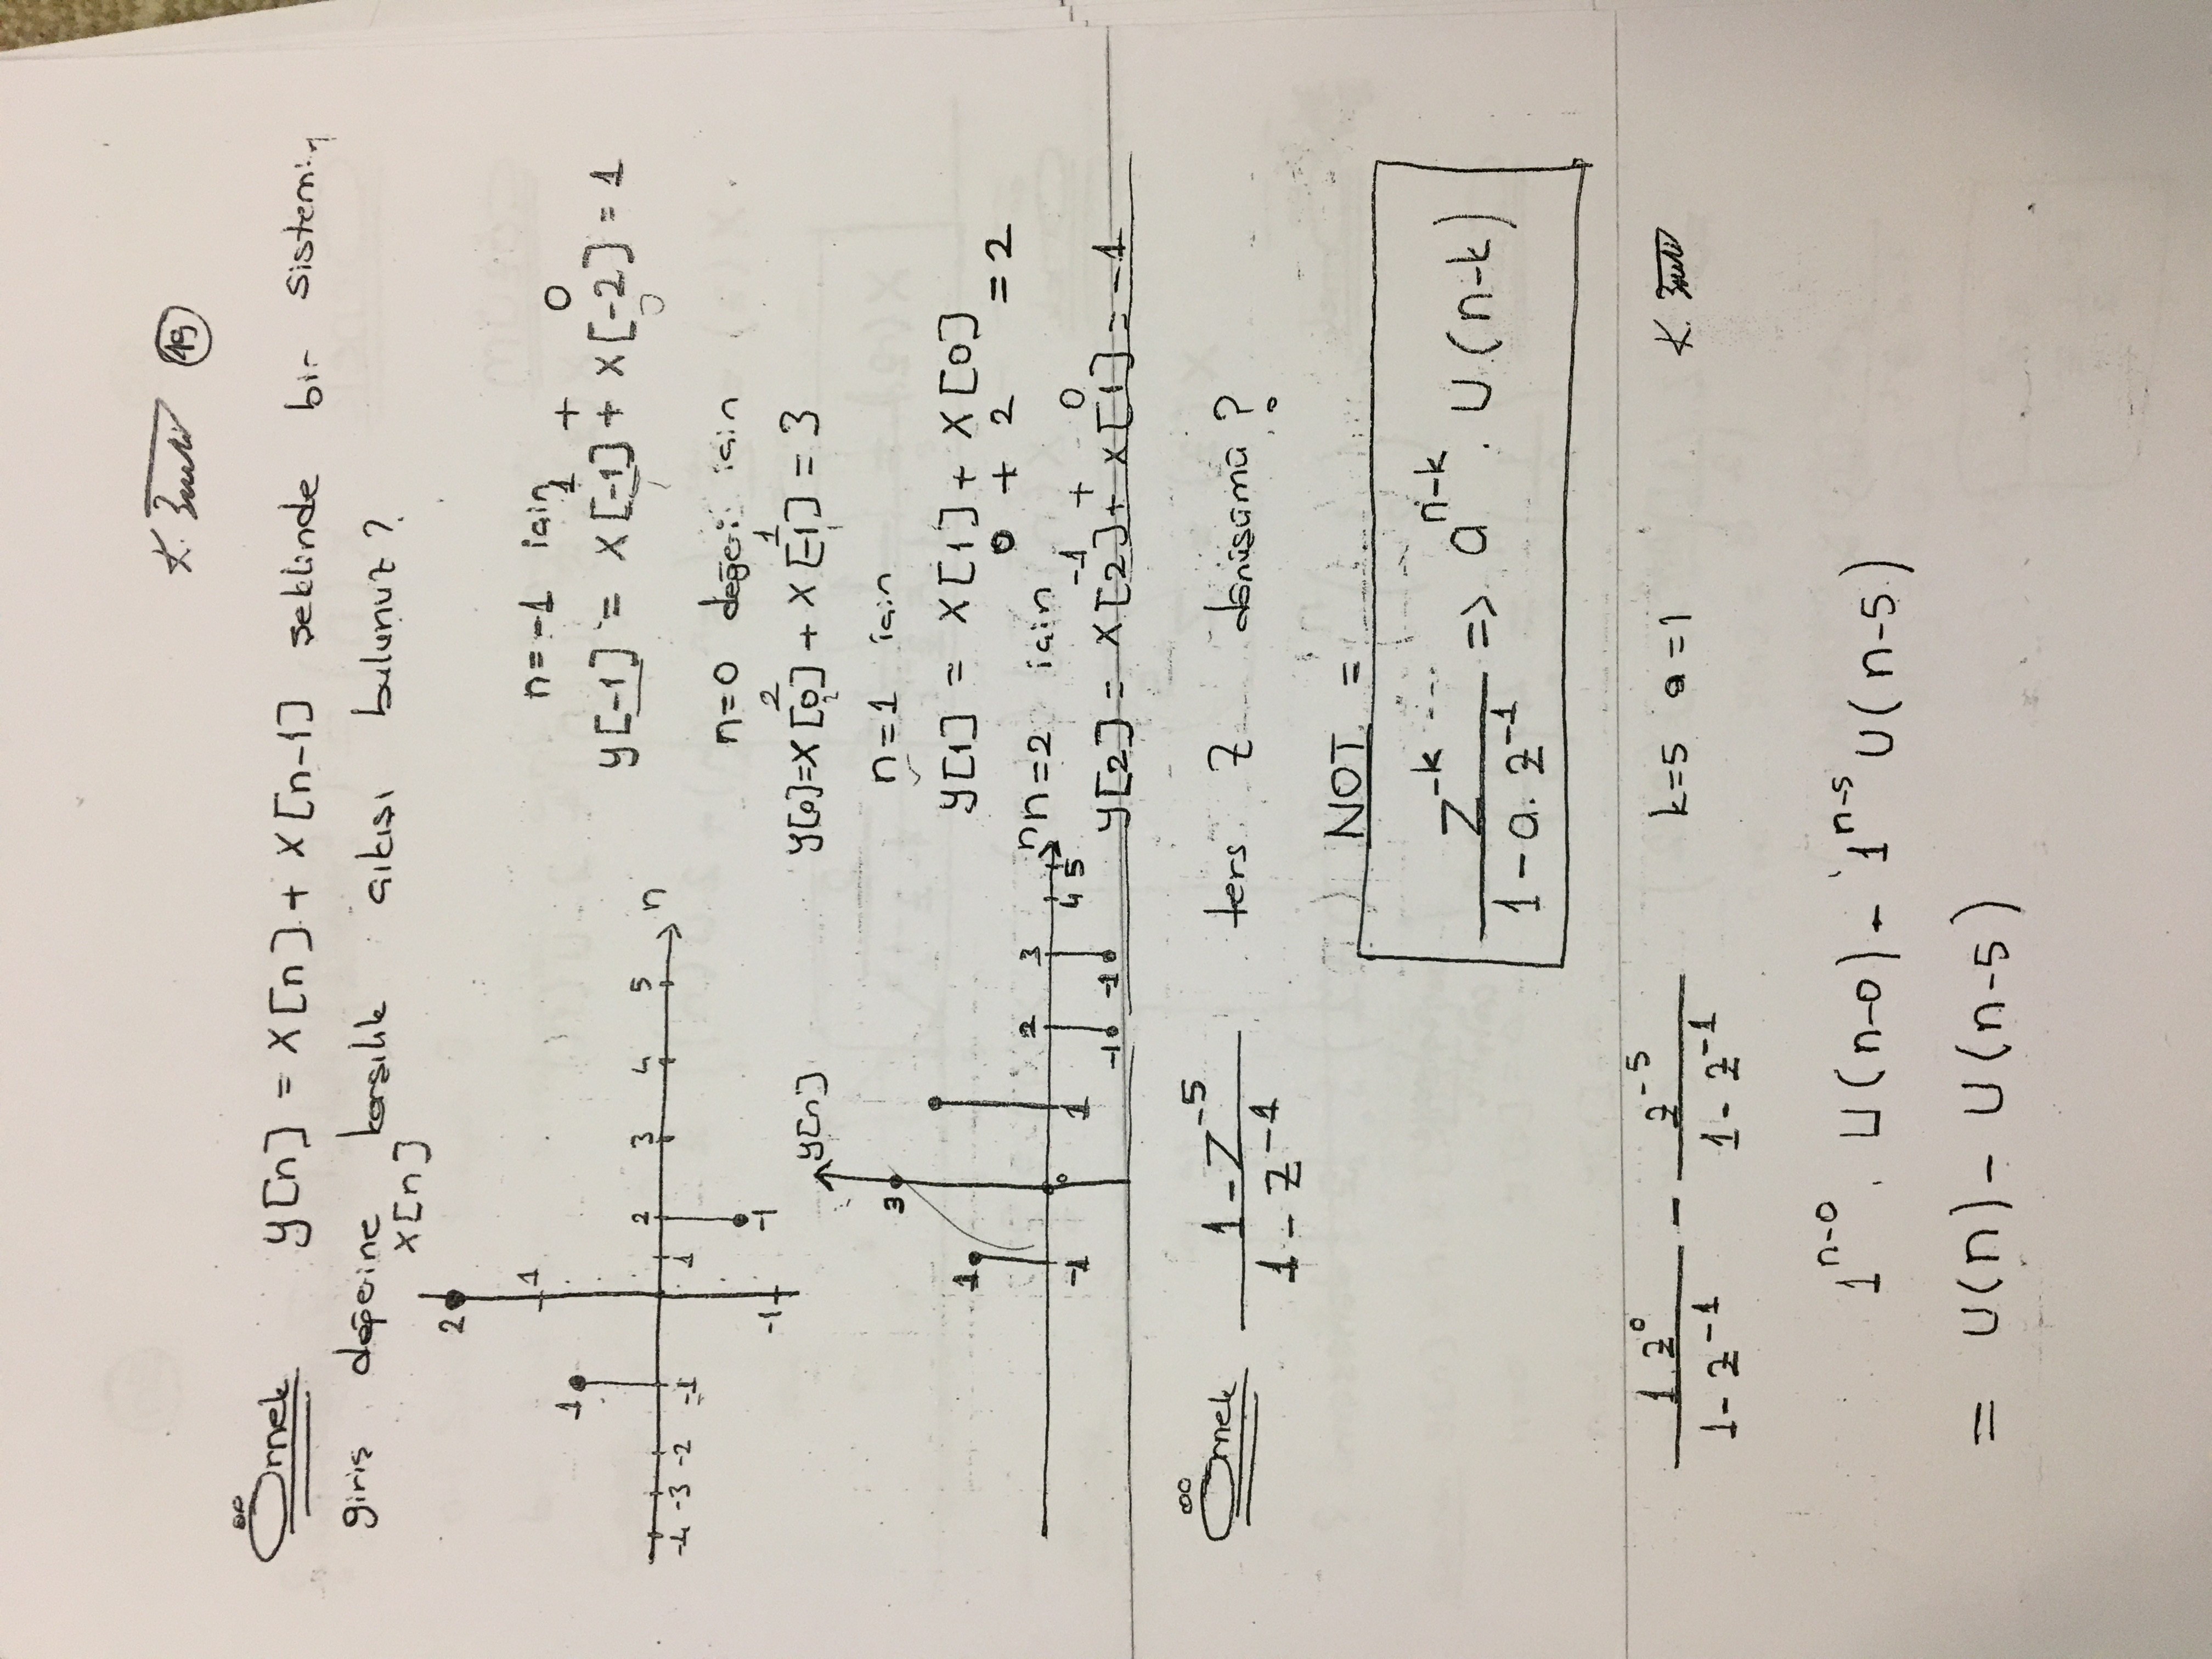 K. 19
Örnek y[n] = x[n] + x[n-1] şeklinde bir sistemin
giriş değerine karşılık çıkışı bulunuz?
x[n]
2
1
1
-4 -3 -2 -1 1 2 3 4 5 n
-1
-1
n=-1 için
1 + 0
y[-1] = x[-1] + x[-2] = 1
n=0 değeri için
2 1
y[0]=x[0] + x[-1] = 3
n=1 için
y[1] = x[1] + x[0]
0 + 2 = 2
n=2 için
-1 + 0
y[2] = x[2] + x[1] = -1
y[n]
3
1
-1 0 1 2 3 4 5 n
-1 -1
Örnek (1 - z^-5) / (1 - z^-1) ters z dönüşümü?
NOT =
z^-k / (1 - a. z^-1) => a^n-k . U(n-k)
1.z^0 / (1 - z^-1) - z^-5 / (1 - z^-1) k=5 a=1 K.
1^n-0 . U(n-0) - 1^n-5 U(n-5)
= U(n) - U(n-5)